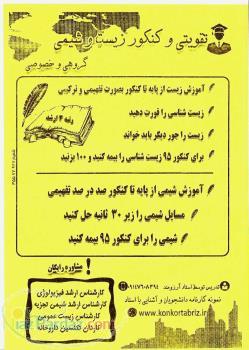 تقویتی و کنکور زیست و شیمی
گروهی و خصوصی
آموزش زیست از پایه تا کنکور بصورت تفهیمی و ترکیبی
زیست شناسی را قورت دهید
زیست را جور دیگر باید خواند
برای کنکور ۹۵ زیست شناسی را بیمه کنید و ۱۰۰ بزنید
رتبه ۳ ارشد
آموزش شیمی از پایه تا کنکور صد در صد تفهیمی
مسایل شیمی را زیر ۳۰ ثانیه حل کنید
شیمی را برای کنکور ۹۵ بیمه کنید
مشاوره رایگان
کارشناس ارشد فیزیولوژی
کارشناس ارشد شیمی تجزیه
کارشناس زیست عمومی
کاردان تکنسین داروخانه
تدریس توسط استاد آرزومند
نمونه کارنامه دانشجویان و آشنایی با استاد
www.konkortabriz.ir